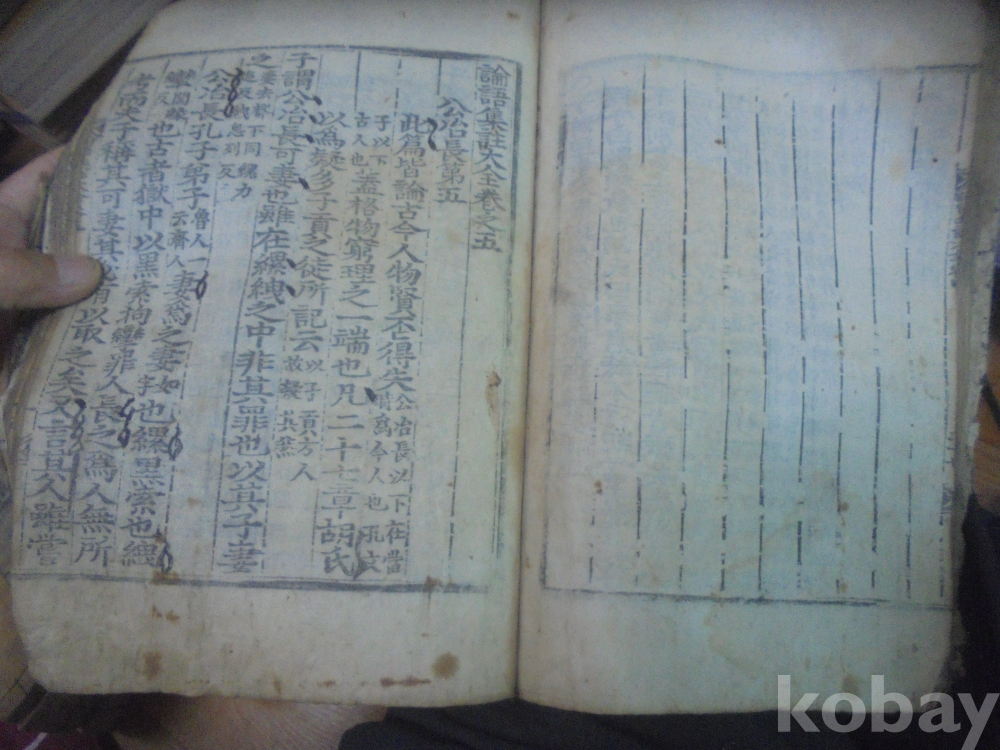 論語集註大全卷之五
公冶長第五
此篇皆論古今人物賢否得失公冶長以下在當時爲今人也孔文
子以下古人也蓋格物窮理之一端也凡二十七章胡氏
以爲疑多子貢之徒所記云以子貢方人故疑其然
子謂公冶長可妻也雖在縲絏之中非其罪也以其子妻
之妻去聲下同縲力追反絏息列反
公冶長孔子弟子魯人一云齊人妻爲之妻如字也縲黑索也絏
攣閭緣反也古者獄中以黑索拘攣罪人長之爲人無所
考而夫子稱其可妻其必有以取之矣又言其人雖嘗
kobay